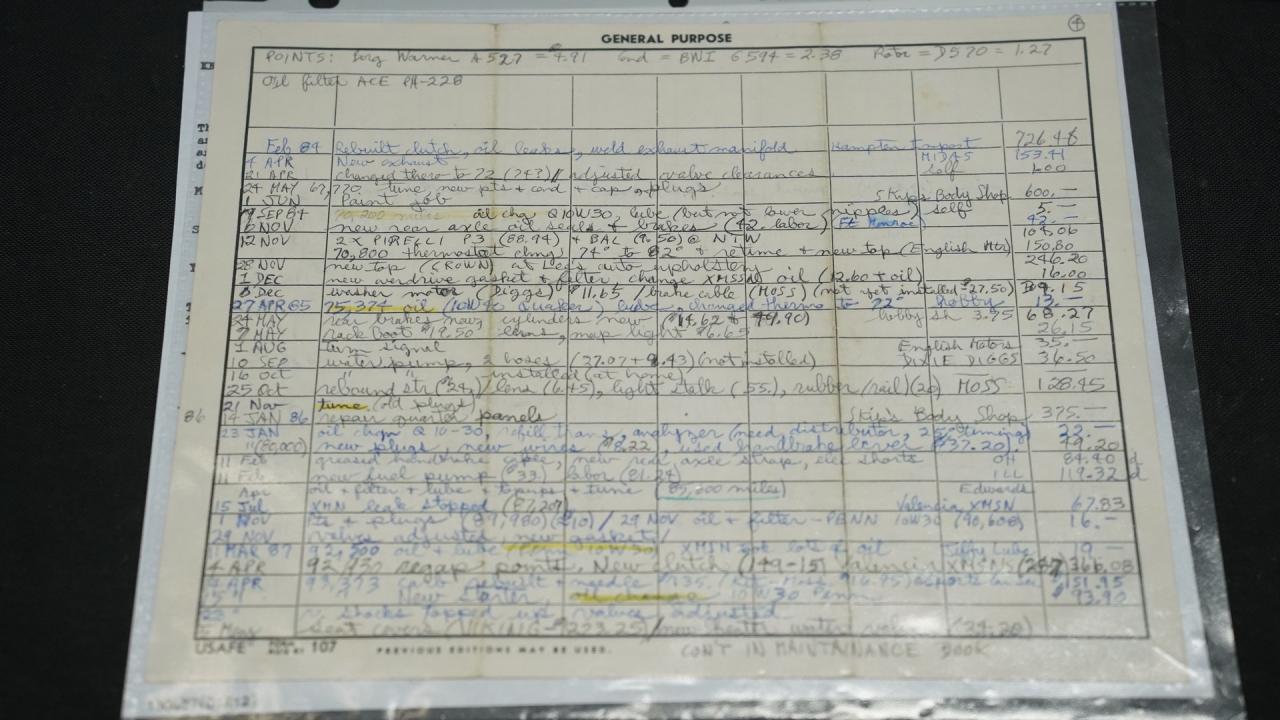 ④
GENERAL PURPOSE
POINTS: Borg Warner A 527 = 4.91 Cond = BWI G 594 = 2.38 Rotor = D570 = 1.27
Oil filter ACE PH-228
Feb 84 Rebuilt clutch, oil leaks, weld exhaust manifold Hampton Import 726.48
4 APR New exhaust MIDAS 153.41
21 APR changed thero to 72 (743) / adjusted valve clearances self
24 MAY 67,720 tune, new pts + cond + cap + plugs
1 JUN Paint job Skips Body Shop 600.—
SEP 84 70,200 miles oil chg Q10W30, lube (but not lower nipples) self 5.—
6 NOV new rear axle oil seals + brakes (42. labor) (Ft Monroe) 42.—
12 NOV 2 X PIRELLI P3 (88.94) + BAL (9.50) @ NTW 104.06
70,800 thermostat chng 74° to 82° + retime + new top (English Mtr) 150.80
28 NOV new top (CROWN) at Lee's auto upholstery 246.20
1 DEC new overdrive gasket + filter, change XMSSN oil (12.60 + oil) 16.00
8 Dec washer motor (Diggs) $11.65 / brake cable (MOSS) (not yet installed $27.50) 39.15
27 APR 85 75,374 oil (10W40 Quaker), lube, changed thermo to 72° hobby 13.—
24 MAY rear brakes now, cylinders new ($14.62 + 49.90) hobby sh 3.75 68.27
7 MAY rack boot $19.50 lens, map light $6.65 26.15
1 AUG turn signal English Motors 35.—
10 SEP water pump, 2 hoses (27.07 + 9.43) (not installed) DIXIE DIGGS 36.50
16 Oct " " installed (at home)
25 Oct rebound str ($24) / lens (6.45), light stalk (55.), rubber (rail) (20) MOSS 128.45
21 Nov tune (old plugs)
86 14 JAN 86 repair quarter panels Skip's Body Shop 375.—
23 JAN oil chgn Q 10-30, refill trans, analyzer (need distributor, 25° timing) 22.—
(80,000) new plugs, new wires $2.22, used handbrake lever $37.20) 49.20
11 Feb greased handbrake cable, new rear axle strap, elec shorts 84.40 d
11 Feb new fuel pump ($33.) labor (81.24) ILL 119.32 d
Apr oil + filter + lube + topups + tune (85,200 miles) Edwards
15 Jul XMN leak stopped (87,209) Valencia XMSN 67.83
1 NOV pts + plugs (89,980) ($10) / 29 NOV oil + filter - PENN 10W30 (90,608) 16.—
29 NOV valves adjusted, new gasket
1 MAR 87 92,500 oil & lube 10W30 XMSN took lots of oil Jiffy Lube 19.—
4 APR 92,937 regap points, New clutch (149-15) Valencia XMSNS 366.08
4 APR 93,373 carb rebuilt + needle $135. (kit Moss $16.95) 151.95
15 " New Starter, oil change 10W30 Penn $93.90
22 " shocks topped up valves adjusted
May seat covers (VIKING-$223.25) / new heater water valve (34.20)
USAFE FORM 107 PREVIOUS EDITIONS MAY BE USED. CON'T IN MAINTAINANCE BOOK